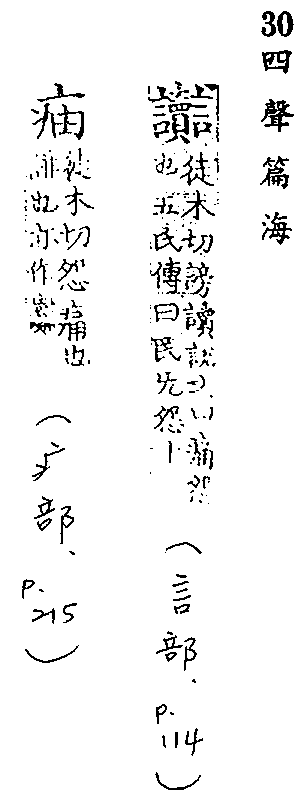 30四聲篇海
徒木切謗讀說文曰痛怨
也左氏傳曰民无怨丨
(言部、p.114)
㾄
徒木切怨痛也
誹也亦作
(疒部、p.215)